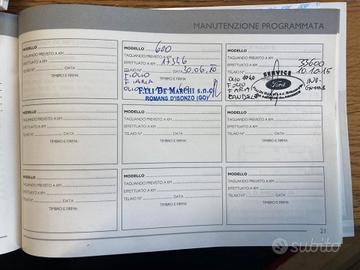 MANUTENZIONE PROGRAMMATA
MODELLO
TAGLIANDO PREVISTO A KM
EFFETTUATO A KM
TELAIO N° DATA
TIMBRO E FIRMA
MODELLO 600
TAGLIANDO PREVISTO A KM
EFFETTUATO A KM 17346
TELAIO N° DATA 30.06.10
F.OLIO
F.ARIA
OLIO
F.LLI DE MARCHI S.N.C.
ROMANS D'ISONZO (GO)
MODELLO
TAGLIANDO PREVISTO A KM 33600
EFFETTUATO A KM 10.10.15
OLIO
F.OLIO
F.ARIA
CANDELE
SERVICE
Ford
MODELLO
TAGLIANDO PREVISTO A KM
EFFETTUATO A KM
TELAIO N° DATA
TIMBRO E FIRMA
MODELLO
TAGLIANDO PREVISTO A KM
EFFETTUATO A KM
TELAIO N° DATA
TIMBRO E FIRMA
MODELLO
TAGLIANDO PREVISTO A KM
EFFETTUATO A KM
TELAIO N° DATA
TIMBRO E FIRMA
MODELLO
TAGLIANDO PREVISTO A KM
EFFETTUATO A KM
TELAIO N° DATA
TIMBRO E FIRMA
MODELLO
TAGLIANDO PREVISTO A KM
EFFETTUATO A KM
TELAIO N° DATA
TIMBRO E FIRMA
MODELLO
TAGLIANDO PREVISTO A KM
EFFETTUATO A KM
TELAIO N° DATA
TIMBRO E FIRMA
21
subito